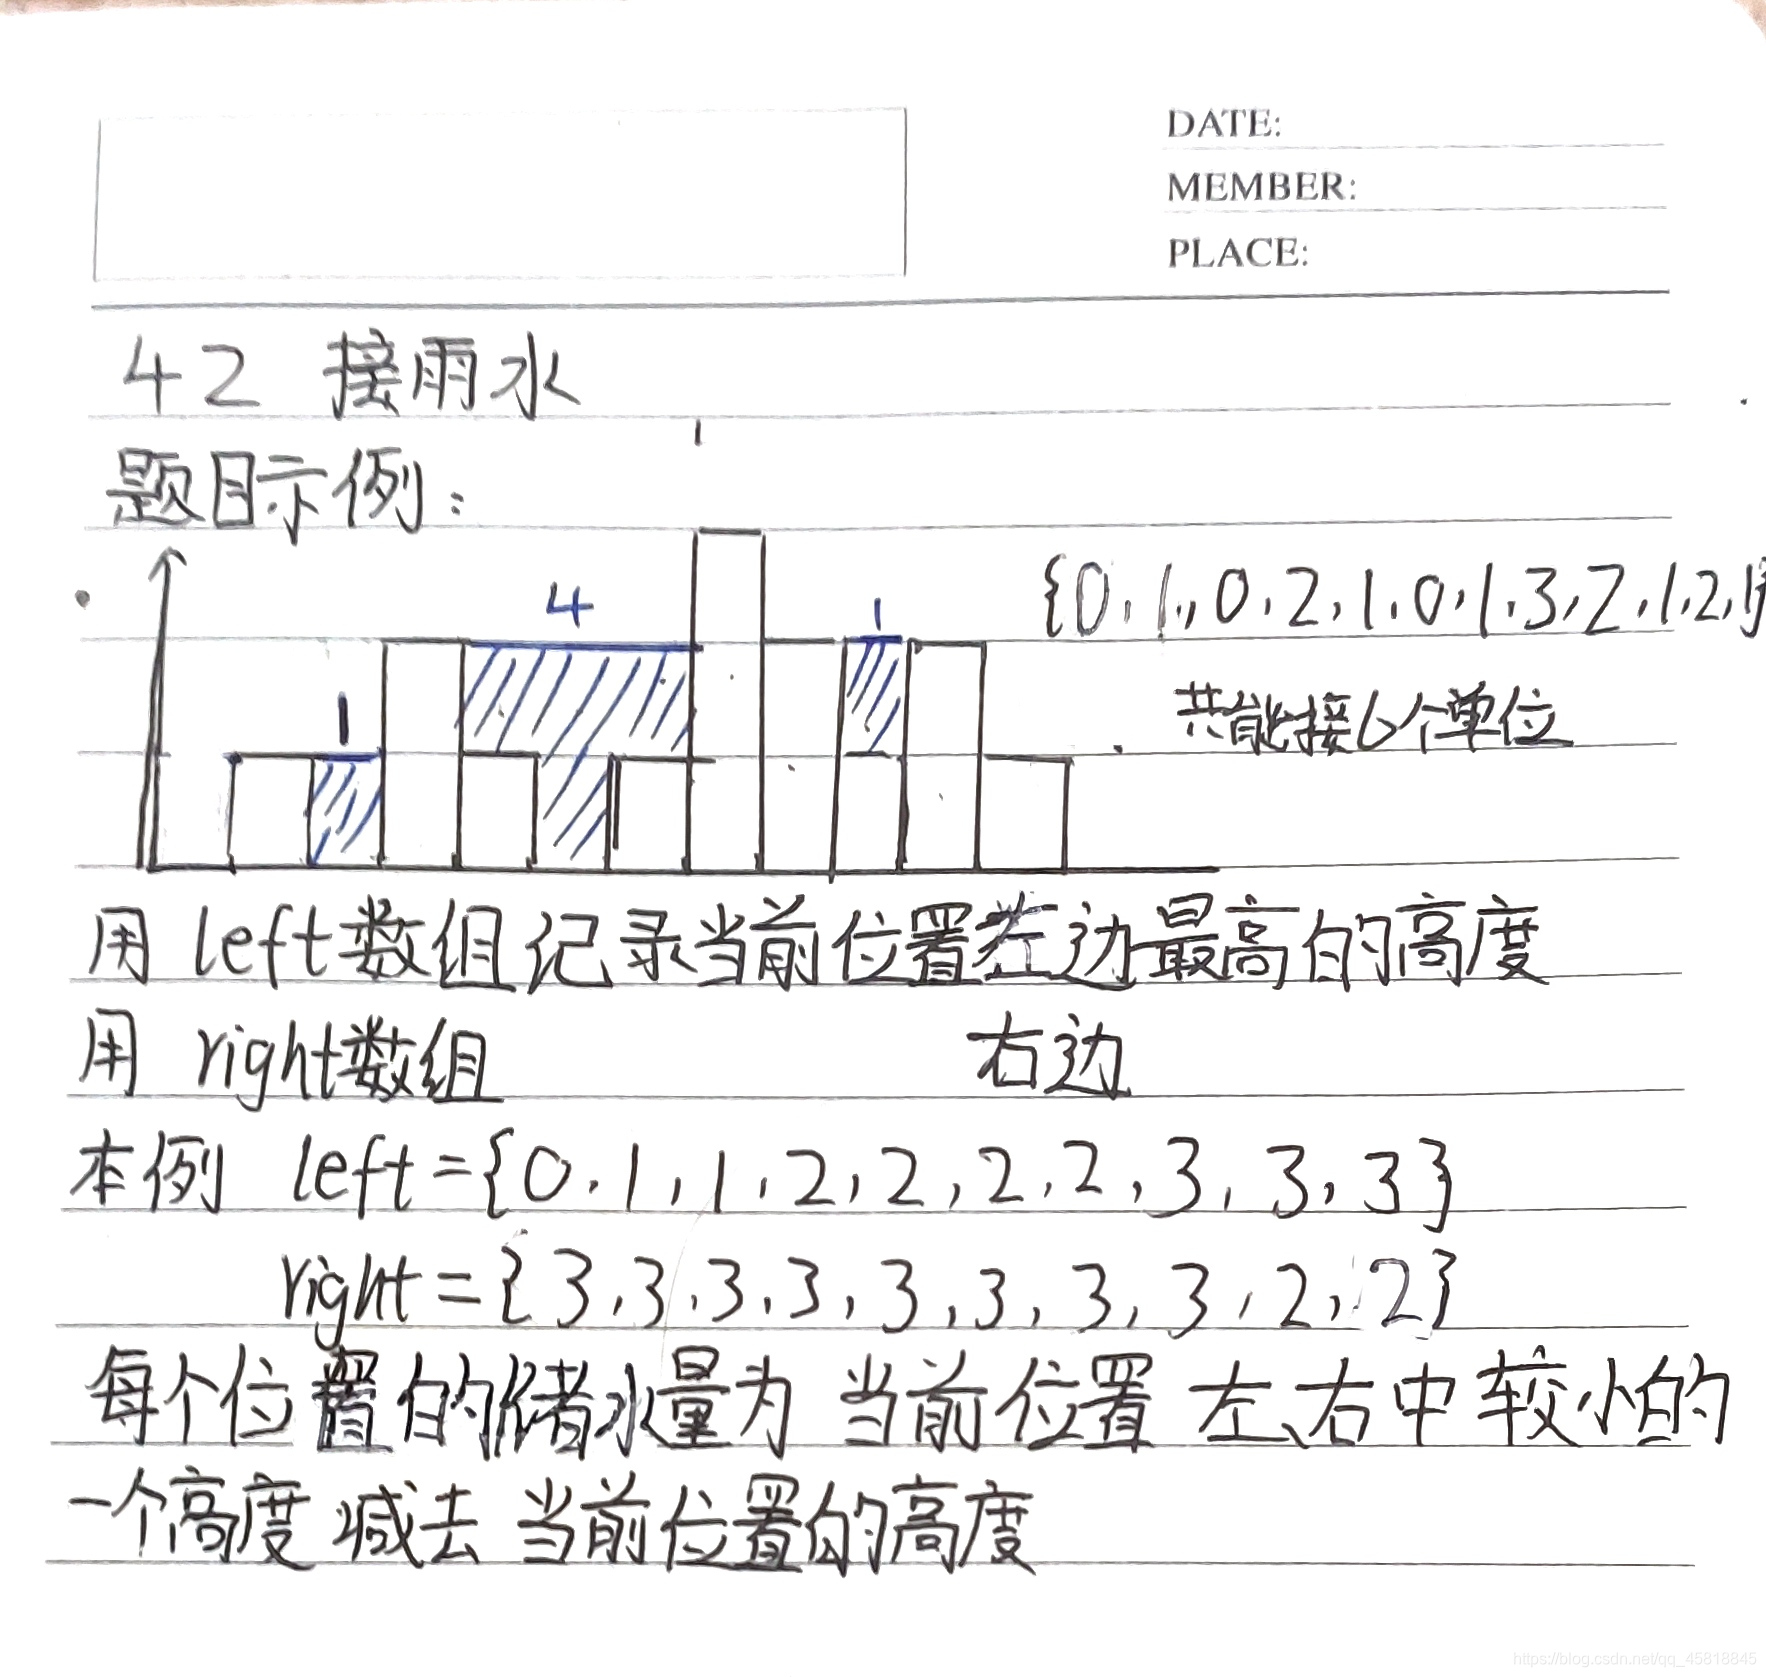 DATE:
MEMBER:
PLACE:
42 接雨水
题目示例:
{0,1,0,2,1,0,1,3,2,1,2,1}
4
1
1
共能接6个单位
用 left数组记录当前位置左边最高的高度
用 right数组 右边
本例 left={0,1,1,2,2,2,2,3,3,3}
right={3,3,3,3,3,3,3,3,2,2}
每个位置的储水量为 当前位置 左、右中较小的
一个高度 减去 当前位置的高度
https://blog.csdn.net/qq_45818845